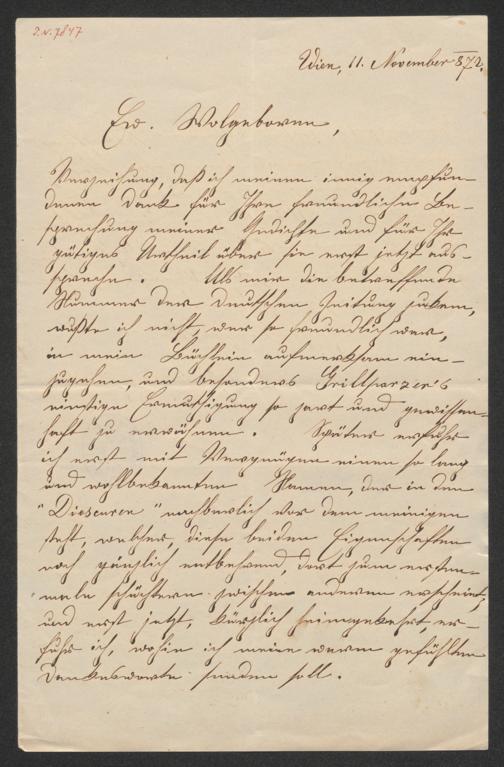 I.N. 7847
Wien, 11. November 872.
Ew. Wolgeboren,
Verzeihung, daß ich meinen innig empfun-
denen Dank für Ihre freundliche Be-
sprechung meiner Gedichte und für Ihr
gütiges Urtheil über sie erst jetzt aus-
spreche. Als mir die betreffende
Nummer der Deutschen Zeitung zukam,
wußte ich nicht, wer so freundlich war,
in mein Büchlein aufmerksam ein-
zugehen, und besonders Grillparzer's
einstige Ermuthigung so zart und gewissen-
haft zu erwähnen. Später erfuhr
ich erst mit Vergnügen einen so lang
und wohlbekannten Namen, der in den
"Dioscuren" nachbarlich vor dem meinigen
steht, welcher, diese beiden Eigenschaften
noch gänzlich entbehrend, dort zum ersten-
male schüchtern zwischen anderen erscheint;
und erst jetzt, kürzlich heimgekehrt, er-
fuhr ich, wohin ich meine warm gefühlten
Dankesworte senden soll.